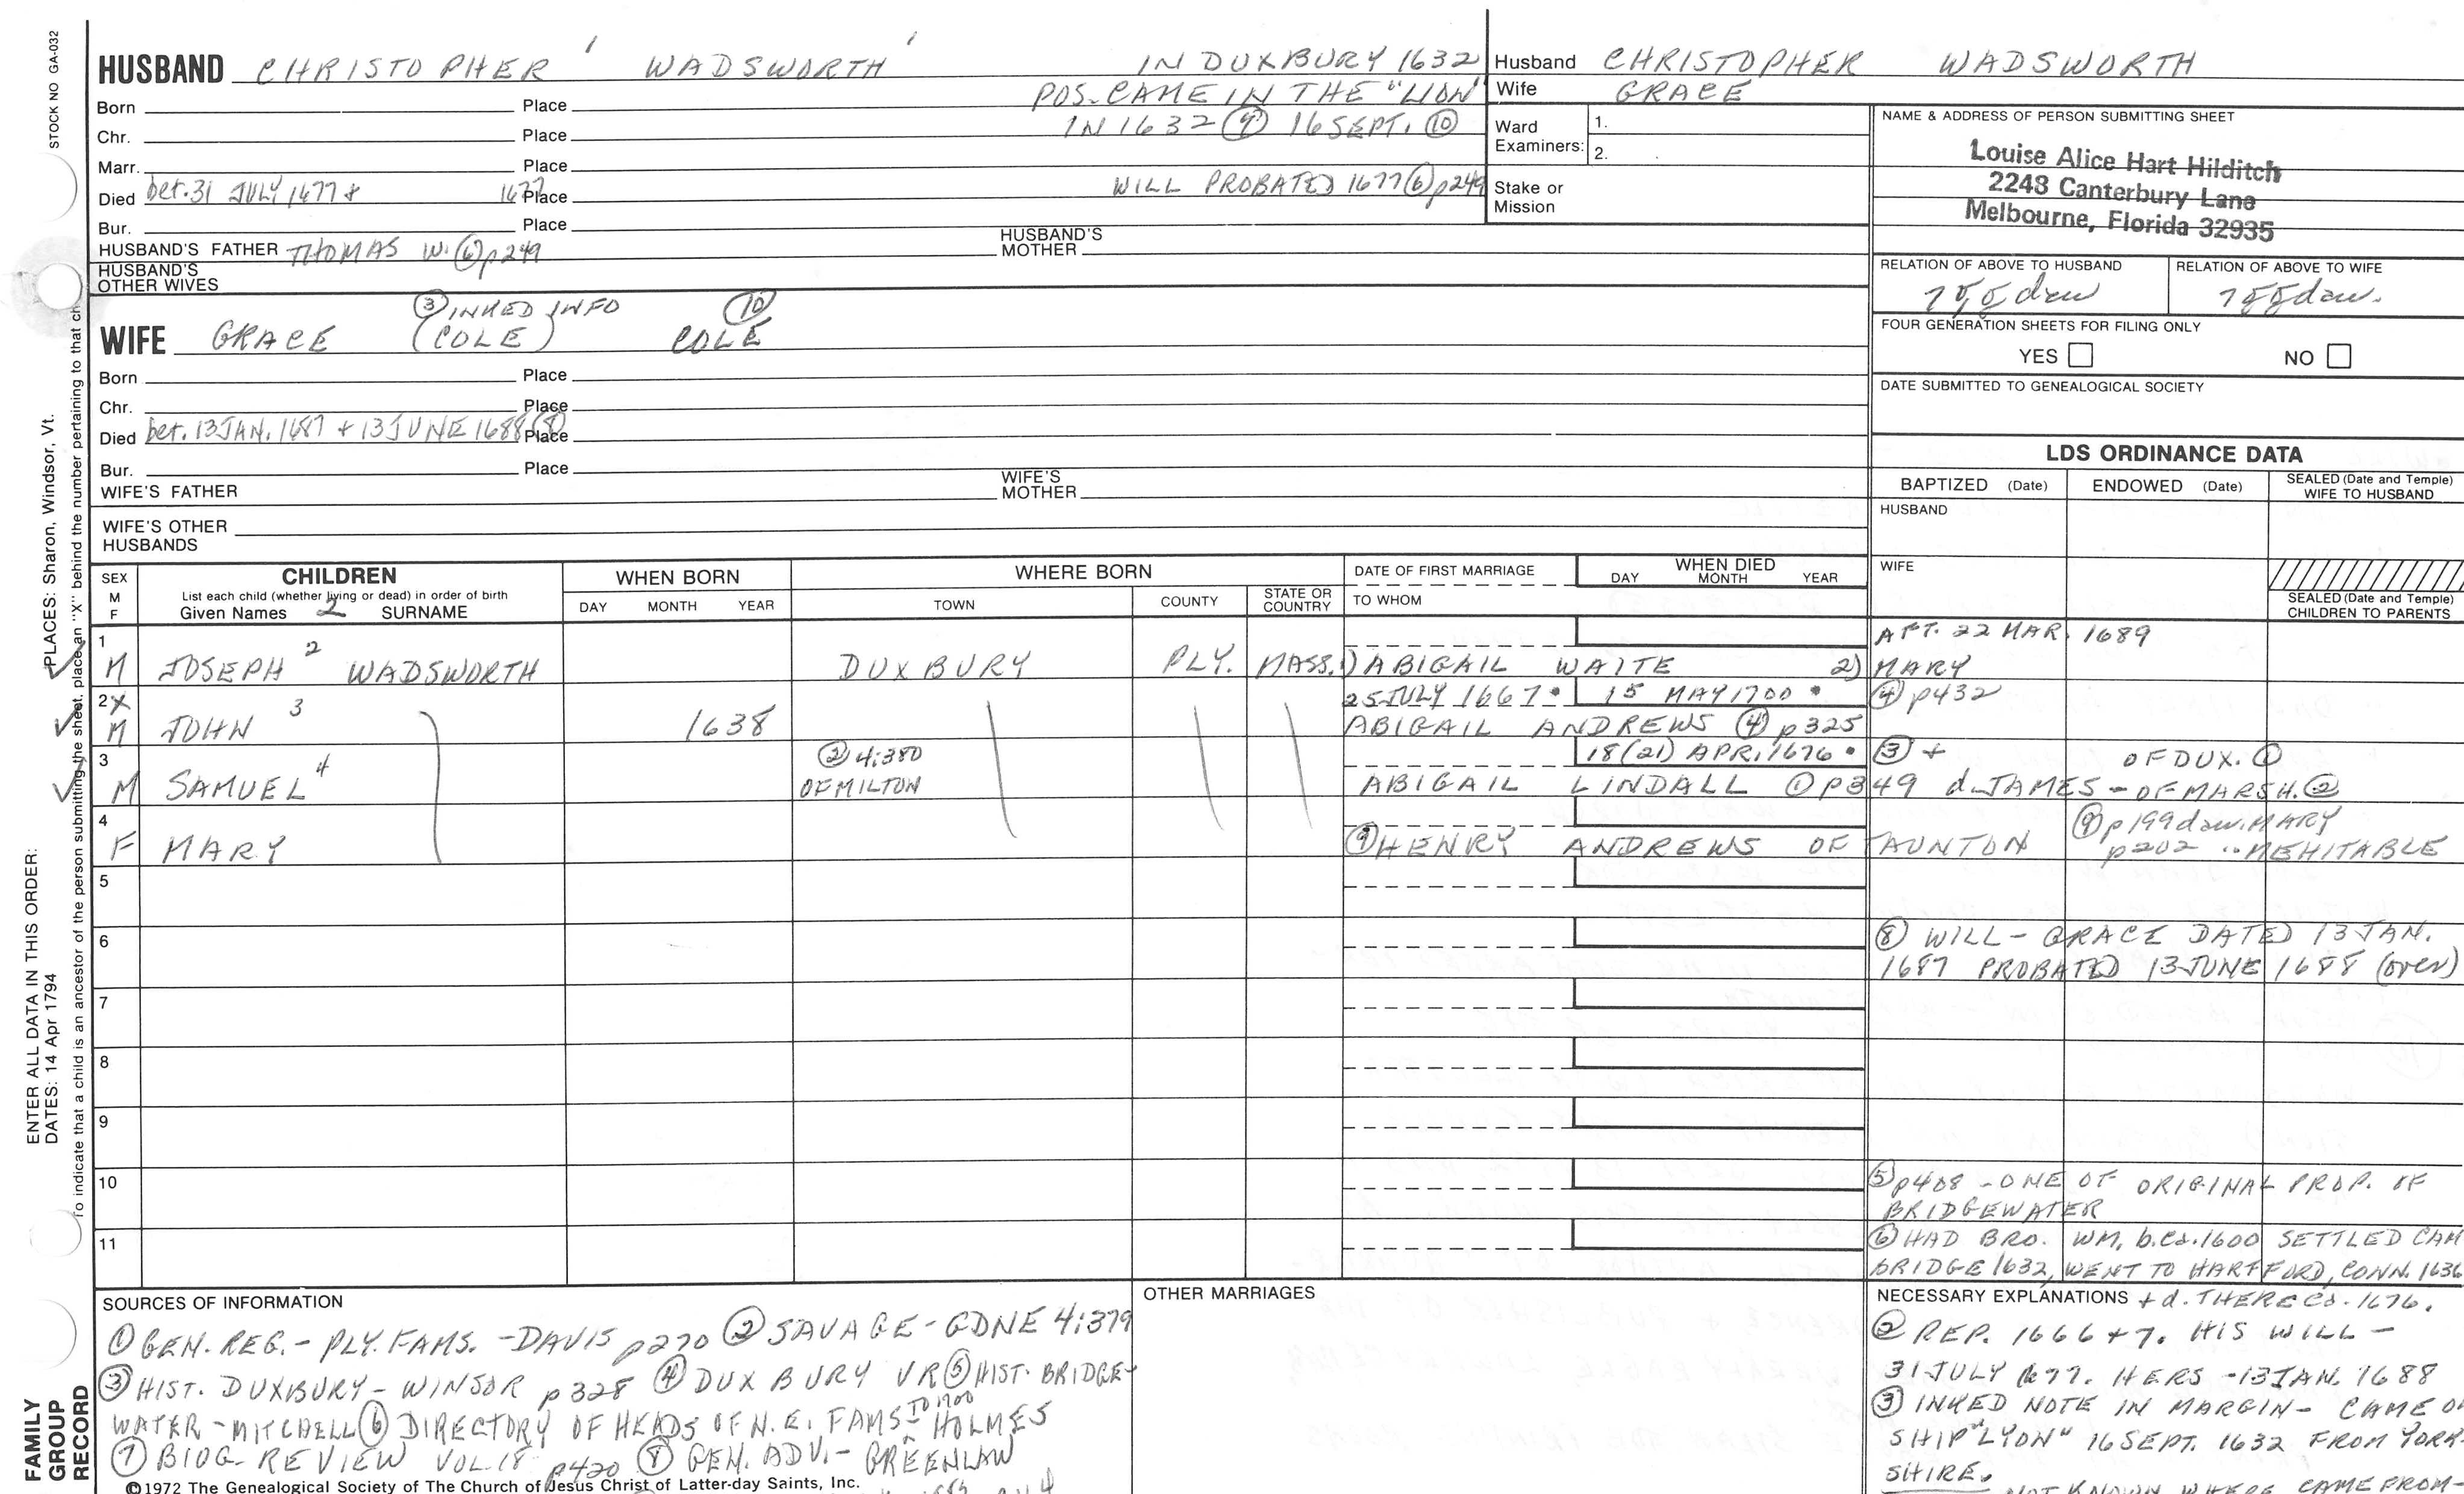 STOCK NO GA-032
PLACES: Sharon, Windsor, Vt.
ENTER ALL DATA IN THIS ORDER:
DATES: 14 Apr 1794
To indicate that a child is an ancestor of the person submitting the sheet, place an "X" behind the number pertaining to that ch
FAMILY GROUP RECORD
HUSBAND CHRISTOPHER 1 WADSWORTH 1 IN DUXBURY 1632
Born Place POS. CAME IN THE "LION"
Chr. Place IN 1632 (9) 16 SEPT. (10)
Marr. Place
Died bet. 31 JULY 1677 + 1677 Place WILL PROBATED 1677 (6) p249
Bur. Place
HUSBAND'S FATHER THOMAS W. (6) p249 HUSBAND'S MOTHER
HUSBAND'S OTHER WIVES
(3) INKED INFO (10)
WIFE GRACE (COLE) COLE
Born Place
Chr. Place
Died bet. 13 JAN. 1687 + 13 JUNE 1688 (8) Place
Bur. Place
WIFE'S FATHER WIFE'S MOTHER
WIFE'S OTHER HUSBANDS
Husband CHRISTOPHER WADSWORTH
Wife GRACE
Ward Examiners: 1.
2.
Stake or Mission
NAME & ADDRESS OF PERSON SUBMITTING SHEET
Louise Alice Hart Hilditch
2248 Canterbury Lane
Melbourne, Florida 32935
RELATION OF ABOVE TO HUSBAND RELATION OF ABOVE TO WIFE
7 gg dau 7 gg dau.
FOUR GENERATION SHEETS FOR FILING ONLY
YES NO
DATE SUBMITTED TO GENEALOGICAL SOCIETY
LDS ORDINANCE DATA
BAPTIZED (Date) ENDOWED (Date) SEALED (Date and Temple) WIFE TO HUSBAND
HUSBAND
WIFE
SEALED (Date and Temple) CHILDREN TO PARENTS
SEX M F CHILDREN WHEN BORN WHERE BORN DATE OF FIRST MARRIAGE WHEN DIED
List each child (whether living or dead) in order of birth
Given Names 2 SURNAME DAY MONTH YEAR TOWN COUNTY STATE OR COUNTRY TO WHOM DAY MONTH YEAR
1 AFT. 22 MAR. 1689
M JOSEPH 2 WADSWORTH DUXBURY PLY. MASS. 1) ABIGAIL WAITE 2) MARY
2 X 25 JULY 1667 15 MAY 1700 (4) p432
M JOHN 3 1638 ABIGAIL ANDREWS (4) p325
3 (2) 4:380 18 (21) APR. 1676 (3) + OF DUX. (1)
M SAMUEL 4 OF MILTON ABIGAIL LINDALL (1) p349 d. JAMES - OF MARSH. (2)
4 (9) p199 dau. MARY
F MARY (9) HENRY ANDREWS OF TAUNTON p202 " MEHITABLE
5
6 (8) WILL - GRACE DATED 13 JAN.
1687 PROBATED 13 JUNE 1688 (over)
7
8
9
10 (5) p408 - ONE OF ORIGINAL PROP. OF
BRIDGEWATER
11 (6) HAD BRO. WM, b. ca. 1600 SETTLED CAM
BRIDGE 1632, WENT TO HARTFORD, CONN. 1636
SOURCES OF INFORMATION
(1) GEN. REG. - PLY. FAMS. - DAVIS p270 (2) SAVAGE - GDNE 4:379
(3) HIST. DUXBURY - WINSOR p328 (4) DUXBURY VR (5) HIST. BRIDGE-
WATER - MITCHELL (6) DIRECTORY OF HEADS OF N.E. FAMS TO 1700 - HOLMES
(7) BIOG. REVIEW VOL. 18 p420 (8) GEN. ADV. - GREENLAW
©1972 The Genealogical Society of The Church of Jesus Christ of Latter-day Saints, Inc.
OTHER MARRIAGES
NECESSARY EXPLANATIONS + d. THERE ca. 1676.
(2) REP. 1666 + 7. HIS WILL -
31 JULY 1677. HERS - 13 JAN. 1688
(3) INKED NOTE IN MARGIN - CAME O
SHIP "LYON" 16 SEPT. 1632 FROM YORK-
SHIRE.
NOT KNOWN WHERE CAME FROM-